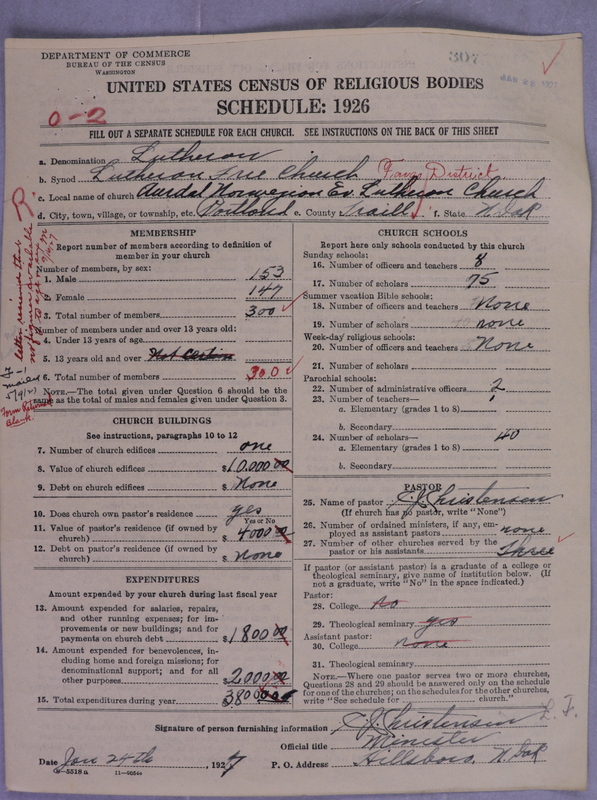 DEPARTMENT OF COMMERCE
BUREAU OF THE CENSUS
WASHINGTON
307
UNITED STATES CENSUS OF RELIGIOUS BODIES
SCHEDULE: 1926
0-2
FILL OUT A SEPARATE SCHEDULE FOR EACH CHURCH. SEE INSTRUCTIONS ON THE BACK OF THIS SHEET
a. Denomination Lutheran
b. Synod Lutheran Free Church
c. Local name of church Aardal Norwegian Ev. Lutheran Church
d. City, town, village, or township, etc. Portland e. County Traill f. State N. Dak
MEMBERSHIP
Report number of members according to definition of member in your church
Number of members, by sex:
1. Male 153
2. Female 147
3. Total number of members 300
Number of members under and over 13 years old:
4. Under 13 years of age
5. 13 years old and over Not Certain
6. Total number of members 300
NOTE.—The total given under Question 6 should be the same as the total of males and females given under Question 3.
CHURCH BUILDINGS
See instructions, paragraphs 10 to 12
7. Number of church edifices one
8. Value of church edifices $10,000.00
9. Debt on church edifices $ None
10. Does church own pastor's residence yes
Yes or No
11. Value of pastor's residence (if owned by church) $ 4000.00
12. Debt on pastor's residence (if owned by church) $ None
EXPENDITURES
Amount expended by your church during last fiscal year
13. Amount expended for salaries, repairs, and other running expenses; for improvements or new buildings; and for payments on church debt $ 1800.00
14. Amount expended for benevolences, including home and foreign missions; for denominational support; and for all other purposes 2,000.00
15. Total expenditures during year $ 3800.00
CHURCH SCHOOLS
Report here only schools conducted by this church
Sunday schools:
16. Number of officers and teachers 8
17. Number of scholars 75
Summer vacation Bible schools:
18. Number of officers and teachers None
19. Number of scholars none
Week-day religious schools:
20. Number of officers and teachers None
21. Number of scholars
Parochial schools:
22. Number of administrative officers 2
23. Number of teachers—
a. Elementary (grades 1 to 8)
b. Secondary
24. Number of scholars— 40
a. Elementary (grades 1 to 8)
b. Secondary
PASTOR
25. Name of pastor C. J. Christenson
(If church has no pastor, write "None")
26. Number of ordained ministers, if any, employed as assistant pastors none
27. Number of other churches served by the pastor or his assistants Three
If pastor (or assistant pastor) is a graduate of a college or theological seminary, give name of institution below. (If not a graduate, write "No" in the space indicated.)
Pastor:
28. College no
29. Theological seminary yes
Assistant pastor:
30. College none
31. Theological seminary
NOTE.—Where one pastor serves two or more churches, Questions 28 and 29 should be answered only on the schedule for one of the churches; on the schedules for the other churches, write "See schedule for church."
Signature of person furnishing information C. J. Christenson
Official title Minister
Date Jan 24th, 1927 P. O. Address Hillsboro, N. Dak
8-5518 a 11-9054